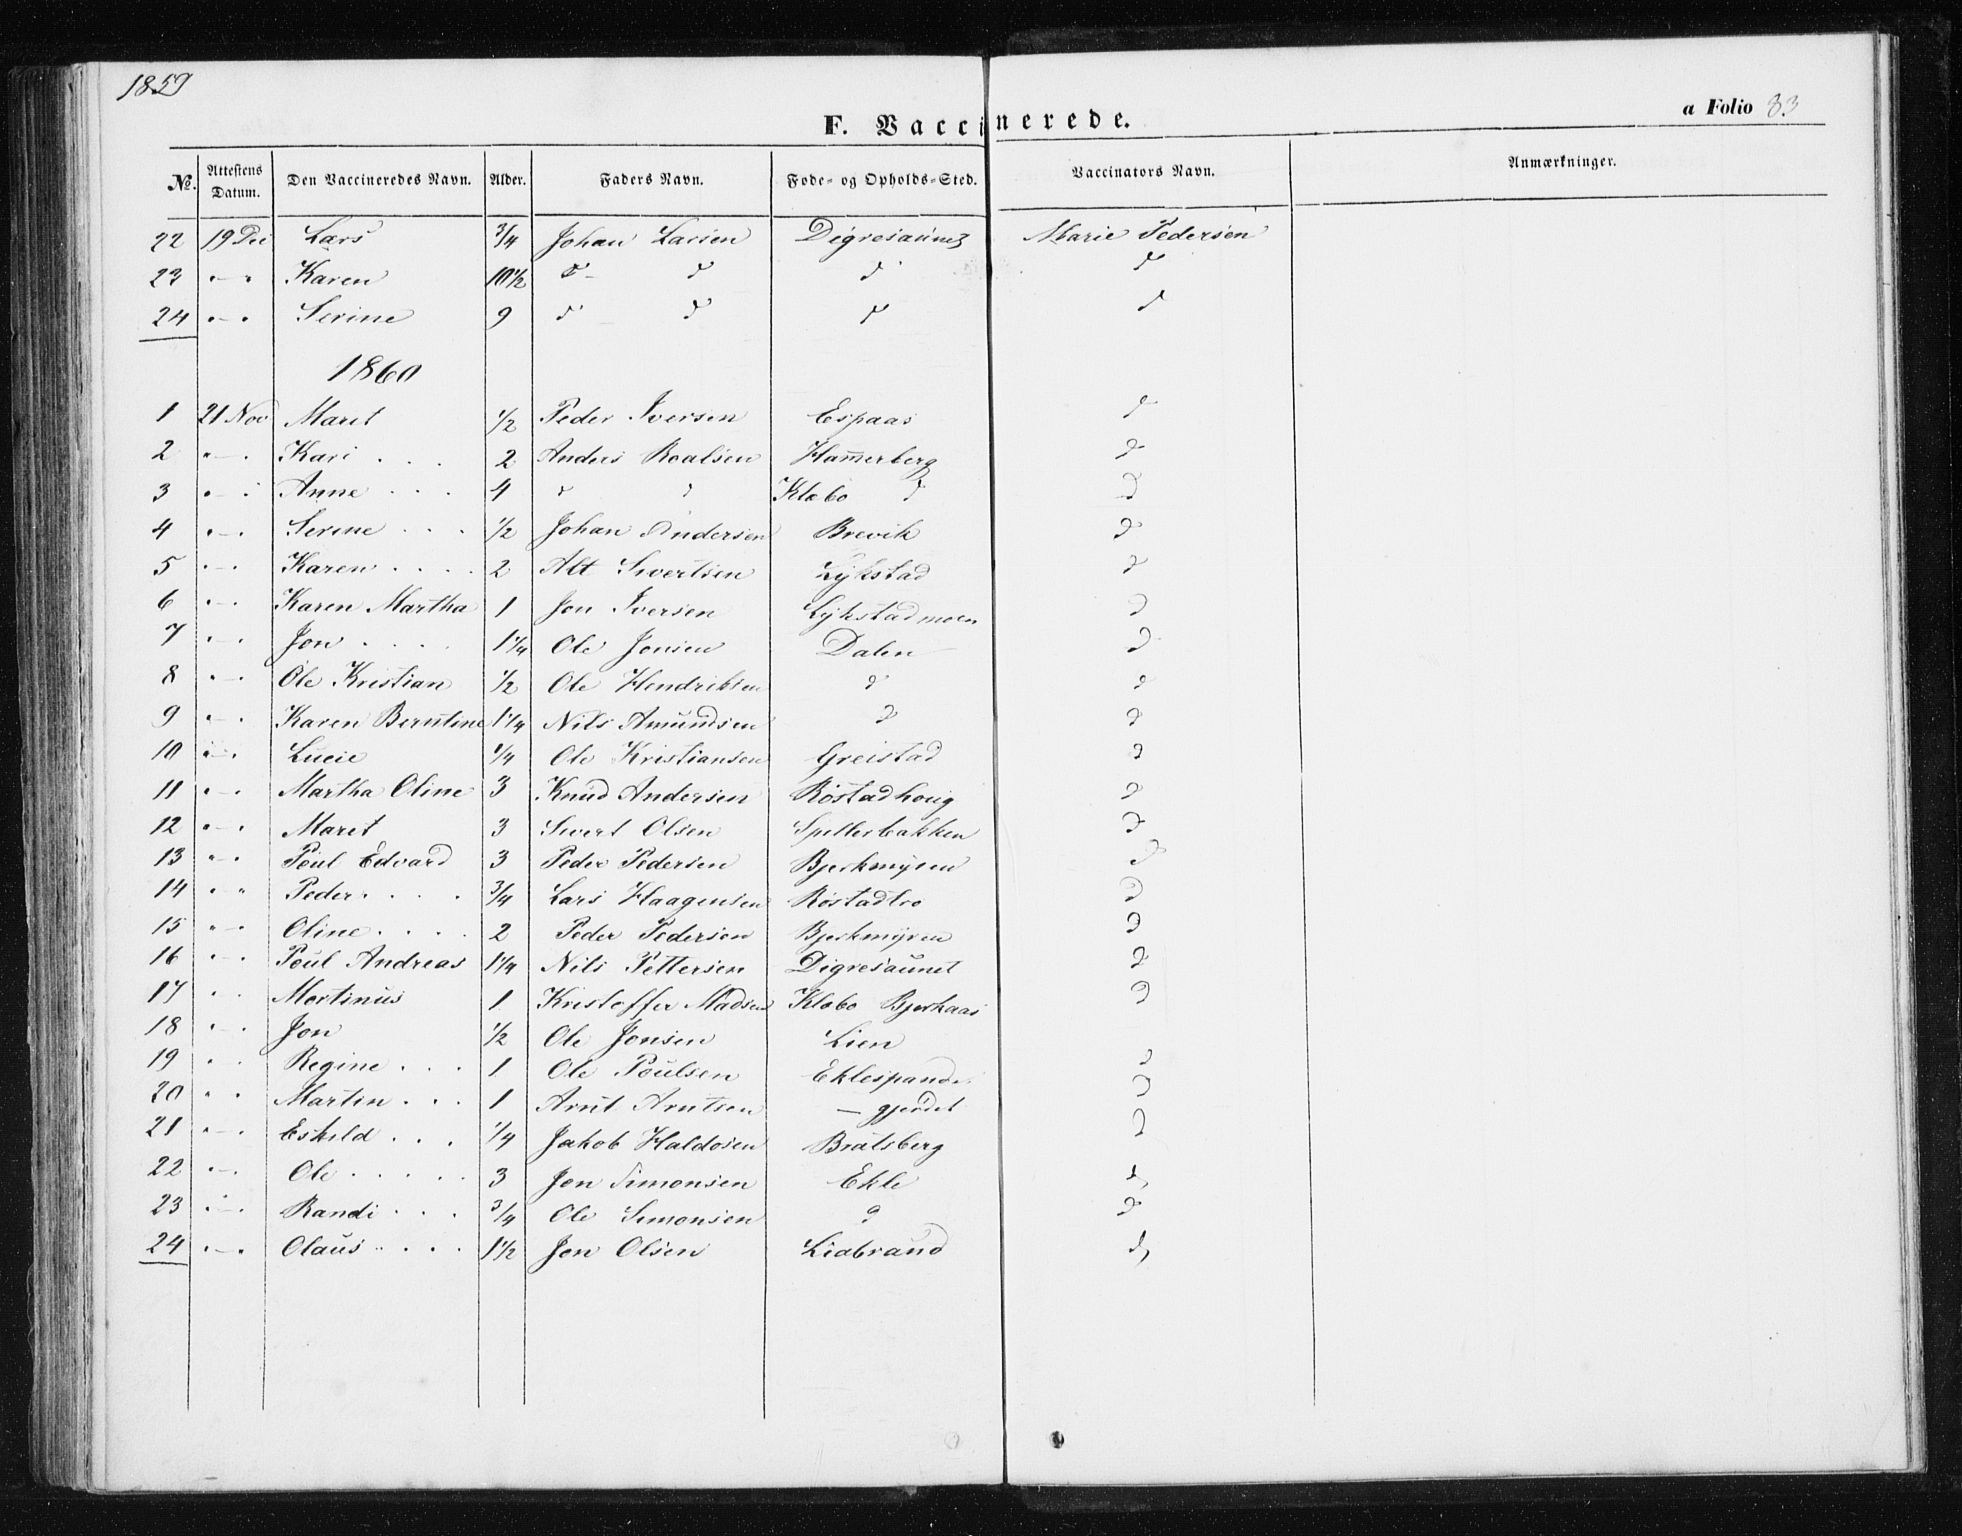 1859
F. Vaccinerede.
a Folio 83
No. Attestens Datum. Den Vaccineredes Navn. Alder. Faders Navn. Føde- og Opholds-Sted. Vaccinators Navn. Anmærkninger.
22 19 Dec Lars 3/4 Johan Larsen Digresaunet Marie Pedersen
23 " - " Karen 10 1/2 d - d d d
24 " - " Serine 9 d - d d d
1860
1 21 Nov Marit 1/2 Peder Iversen Espaas d
2 " - " Kari . . . 2 Anders Roalsen Hamerberg d
3 " - " Anne . . . 4 d d Klæbo d d
4 " - " Serine . . . 1/2 Johan Andersen Brevik d
5 " - " Karen . . . . 2 Alt Sivertsen Lykstad d
6 " - " Karen Martha 1 Jon Iversen Lykstadmoen d
7 " - " Jon . . . . 1 1/4 Ole Jonsen Dalen d
8 " - " Ole Kristian 1/2 Ole Hendriksen d d
9 " - " Karen Berntine 1 1/4 Nils Amundsen d d
10 " - " Lucie 1/4 Ole Kristiansen Greistad d
11 " - " Martha Oline 3 Knud Andersen Røstadhoug d
12 " - " Marit 3 Sivert Olsen Spellerbakken d
13 " - " Poul Edvard 3 Peder Pedersen Bjerkmyren d
14 " - " Peder . . . . 3/4 Lars Haagensen Røstadtrø d
15 " - " Oline . . . . 2 Peder Pedersen Bjerkmyren d
16 " - " Poul Andreas 1 1/4 Nils Pettersen Digresaunet d
17 " " Mortinus 1 Kristoffer Madsen Klæbo Bjerkaas d
18 " - " Jon 1/2 Ole Jonsen Lien
19 " " Regine . . . 1 Ole Poulsen d
20 " " Martin . . . 1 Arnt Arntsen - gjerdet d
21 " - " Eskild . . . 1/4 Jakob Haldosen Bratsberg d
22 " - " Ole . . . . . 3 Jon Simonsen Ekle d
23 " - " Randi . . . 3/4 Ole Simonsen d d
24 " - " Olaus . . . . 1 1/2 Jon Olsen Liabraud d